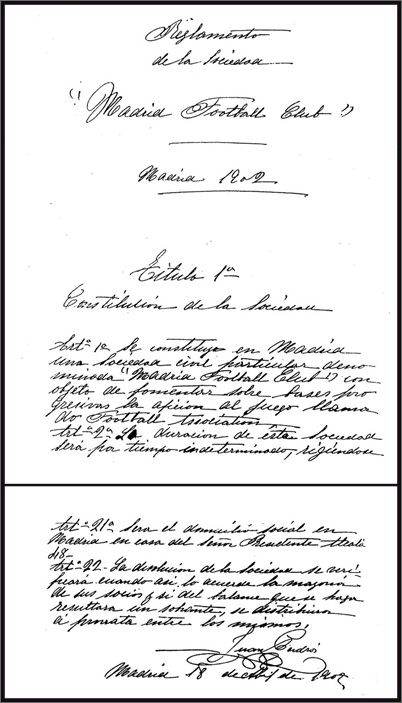 Reglamento
de la Sociedad
"Madrid Football Club"
Madrid 1902
Título 1º
Constitución de la Sociedad
Artº 1º Se constituye en Madrid
una Sociedad civil particular deno
minada "Madrid Football Club" con
objeto de fomentar sobre bases pro
gresivas la aficion al juego llama
do Football Association
Artº 2º La duracion de ésta Sociedad
será por tiempo indeterminado, rigiéndose
Artº 21º Sera el domicilio social en
Madrid en casa del Señor Presidente Alcalá
48-
Artº 22- La disolucion de la Sociedad se veri-
ficará cuando asi lo acuerde la mayoria
de sus socios y si del balance que se haga
resultara un sobrante, se distribuira
á prorrata entre los mismos.
Juan Padrós
Madrid 18 de Abl de 1902